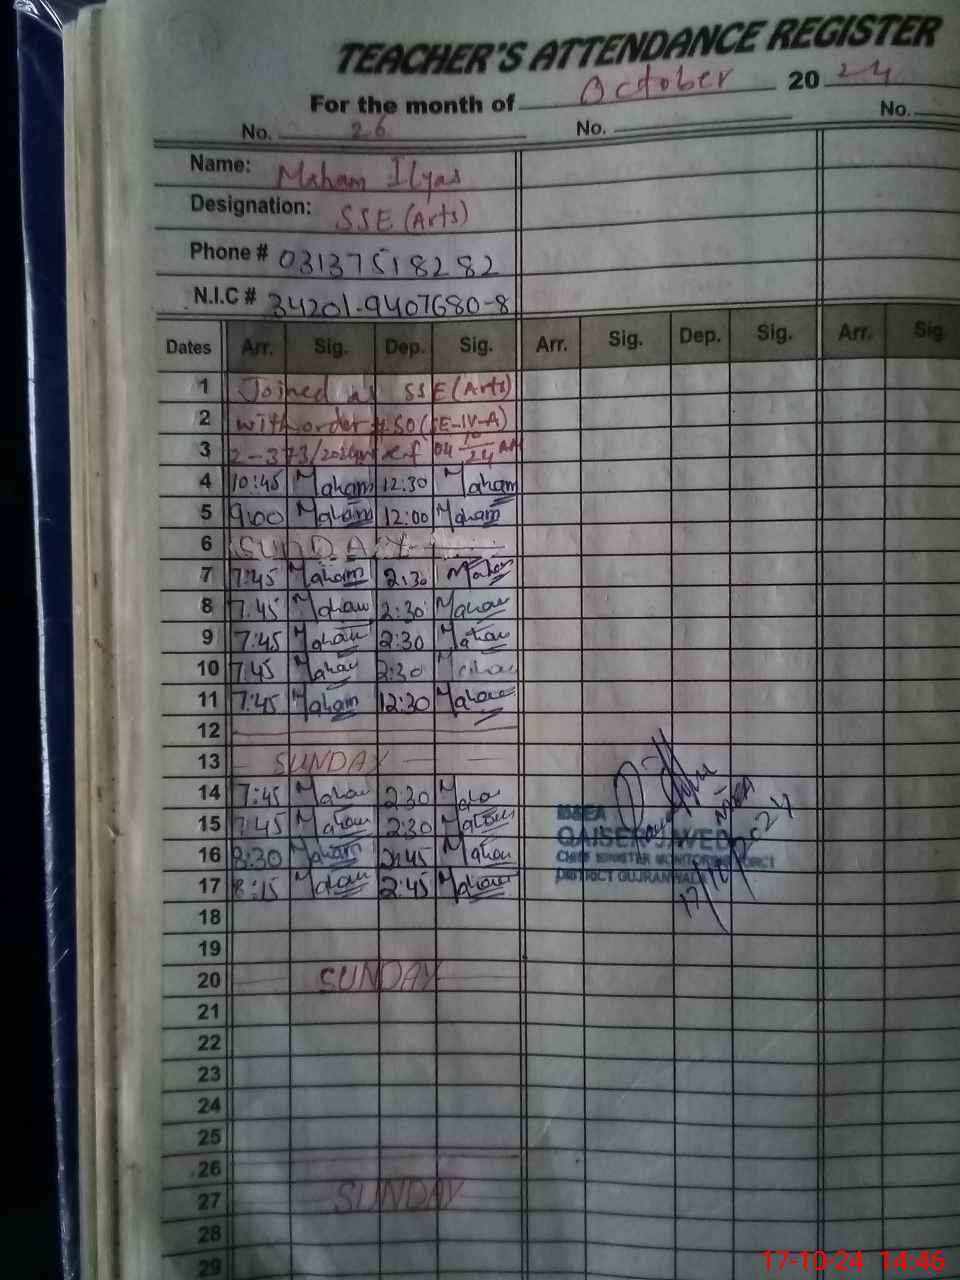 TEACHER'S ATTENDANCE REGISTER
For the month of October 20 24
No. 26 No. No.
Name: Maham Ilyas
Designation: SSE (Arts)
Phone # 03137518282
N.I.C # 34201-9407680-8
Dates Arr. Sig. Dep. Sig. Arr. Sig. Dep. Sig. Arr. Sig.
1 Joined as SSE (Arts)
2 with order # SO(SE-IV-A)
3 2-373/2024 04 10/24
4 10:45 Maham 12:30 Maham
5 9:00 Maham 12:00 Maham
6 SUNDAY
7 7:45 Maham 2:30 Maham
8 7:45 Maham 2:30 Maham
9 7:45 Maham 2:30 Maham
10 7:45 Maham 2:30 Maham
11 7:45 Maham 12:30 Maham
12
13 SUNDAY
14 7:45 Maham 2:30 Maham
15 7:45 Maham 2:30 Maham
16 8:30 Maham 2:45 Maham
17 8:15 Maham 2:45 Maham
MEA
QAISER JAVED
CHIEF MINISTER MONITORING FORCE
DISTRICT GUJRANWALA
17/10/2024
18
19
20 SUNDAY
21
22
23
24
25
26
27 SUNDAY
28
29
17-10-24 14:46